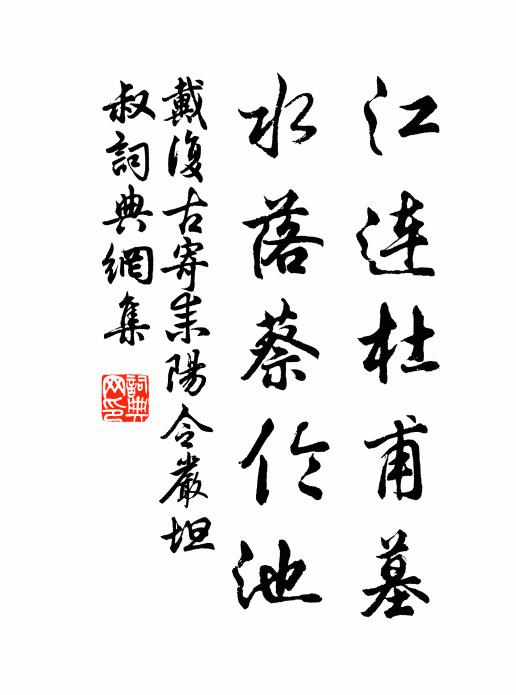 江连杜甫墓
水落蔡伦池
戴復古寄耒陽令嚴坦
叔詞典網集
詞典网印